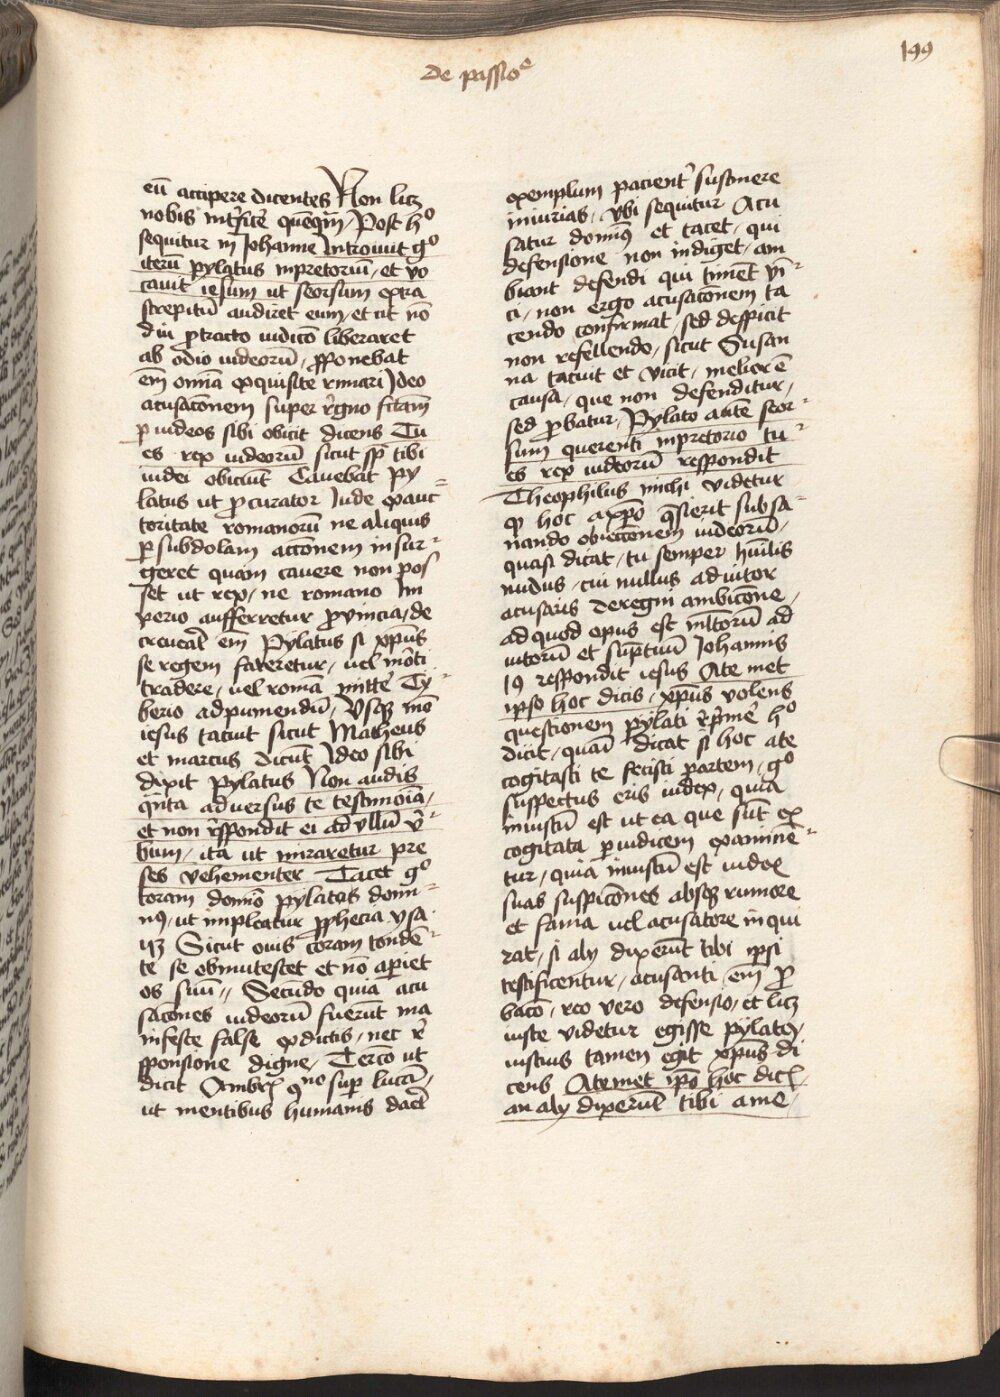 De passioe
199
eū accipere dicentes Non licꝫ
nobis int̉ficē quēqꝫ / Post h°
sequitur in Johanne Introiuit g°
iterū pylatus inpretoriū / et vo
cauit iesum ut seorsum extra
strepitū audiret eum / et cit nō
diu ꝓtracto iudicō liberaret
ab odio iudeorū / ꝓponebat
em̄ omīa exquisite rimari Jdeo
acusacōnem super r̉gno fctām
ꝑ iudeos sibi obicit dicens Tu
es rex iudeorū sicut sꝑ tibi
iudei obiciūt Cauebat py
latus ut ꝓcurator Jude exauc
toritate romanorū ne aliquis
ꝑ subdolam accōnem insur
geret quam cauere non pos
set ut rex / ne romano im
perio aufferretur ꝓvincia / de
creuerat em̄ Pylatus si xp̄us
se regem fateretur / uel mōti
tradere / uel romā mittē Ty
berio adpumendū / Vsqꝫ mō
iesus tacuit sicut Matheus
et marcus dicūt Jdeo sibi
dixit pylatus Non audis
qnta adversus te testimoīa /
et non r̉spondit ei ad vllū v̉
bum / ita ut miraretur pre
ses vehementer Tacet g°
coram domīo pylatus domi
nꝰ / ut impleatur ꝓphecia ysa
iꝫ Sicut ouis coram tondē
te se obmutescet et nō aperiet
os suū // Secūdo quia acu
sacōnes iudeorū fuerūt ma
nifeste false ꝓductis / nec r̉
sponsione digne / Tercō ut
dicit Ambrꝭ qno sup̄ lucā /
ut mentibus humanis daet̉
exemplum pacient̉ sustinere
iniurias / vbi sequitur Acu
satur dominꝰ et tacet / qui
defensione non indiget / am
biant defendi qui timēt vi
ci / non ergo acusacōnem ta
cendo confirmat / sed despicit
non refellendo / sicut Susan
na tacuit et vicit / melior ē
causa / que non defenditur /
sed ꝓbatur / Pylato autē seor
sum querenti inpretorio tu
es rex iudeorū respondit
Theophilus michi videtur
qꝫ hoc axp̄o q̄sierit subsa
nando obieccōnem iudeorū /
quasi dicat / tu semper hūilis
nudus / cui nullus adiutor
acusaris deregni ambicōne /
ad quod opus est mltorū ad
iutorū et sūptuū Johannis
19 respondit iesus Ate met
ipso hoc dicis / xp̄us volens
questionem pylati r̉pmē h°
dicit / quasi dicat si hoc ate
cogitasti te fecisti partem / g°
suspectus eris iudex / quia
iniustū est ut ea que sūt ex
cogitata ꝑ iudicem examinē
tur / quia iniustū est iudex
suas suspicōnes absqꝫ rumore
et fama uel acusatore inqui
rat / si aly dixerūt tibi ipsi
testificentur / acusanti em̄ ꝓ
bacō / reo vero defensio / et licꝫ
iuste videtur egisse pylatꝰ /
iustius tamen egit xp̄us di
cens Atemet ip̄o hoc dicꝭ /
an aly dixerūt tibi ame /